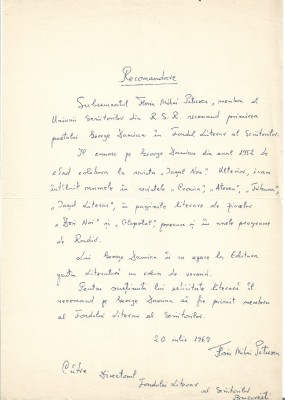 Recomandare
Subsemnatul Florin Mihai Petrescu, membru al
Uniunii Scriitorilor din R.S.R. recomand primirea
poetului George Damian în Fondul Literar al Scriitorilor.
Îl cunosc pe George Damian din anul 1952 de
când colabora la revista „Iașul Nou”. Ulterior, i-am
întîlnit numele în revistele „Cronica”, „Ateneu”, „Tribuna”,
„Iașul Literar”, în paginile literare ale ziarelor
„Zori Noi” și „Clopotul”, precum și în unele programe
de Radio.
Lui George Damian îi va apare la Editura
pentru Literatură un volum de versuri.
Pentru susținuta lui activitate literară îl
recomand pe George Damian să fie primit membru
al Fondului Literar al Scriitorilor.
20 iulie 1969
Florin Mihai Petrescu
Către Directorul
Fondului Literar
al Scriitorilor
București